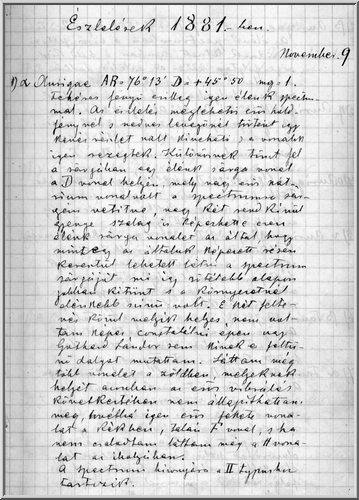 Észlelések 1881.-ben.
November. 9
1) α Aurigae AR = 76° 13' D = + 45° 50 mg = 1.
Fehéres fényű csillag igen élénk spectrum-
mal. Az észlelés meglehetős erős
fénynél s nedves levegőnél történt így
kevés részlet volt kivehető; a vonalak
igen rezegtek. Különösnek tűnt fel
a sárgában egy élénk sárga vonal
a D vonal helyén, mely vagy erős nát-
rium vonal volt a spectrumra
vetítve, vagy két rendkívül
szalag is képezhette ezen
élénk sárga vonalat az által, hogy
mintegy az általuk képezett résen
keresztül lehetett látni a spectrum
sárgáját mi így sötétebb alapon
jobban kitűnt s környezeténél
élénkebb színű volt. E két felte-
vés közül melyik helyes, nem tud-
tam képes constatálni épen úgy
Gothard Sándor sem kinek a feltű-
nő dolgot mutattam. Láttam még
több vonalat a zöldben, melyeknek
helyét azonban az erős vibrálás
következtében nem állapíthattam
meg, továbbá igen erős fekete vona-
lat a kékben, talán F vonal, s ha
nem csalódtam láttam még a H vona-
lat az ibolyában.
A spectrum bizonyára a II typushoz
tartozik.